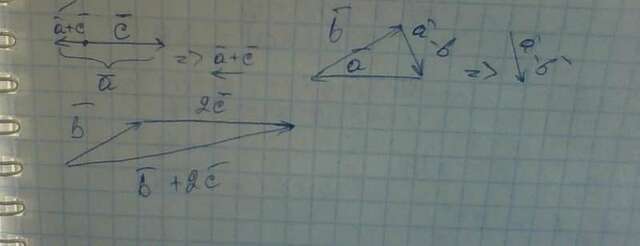 a̅+c̅ c̅
=> a̅+c̅
a̅
b̅
a̅ a-b => a-b
b̅ 2c̅
b̅+2c̅